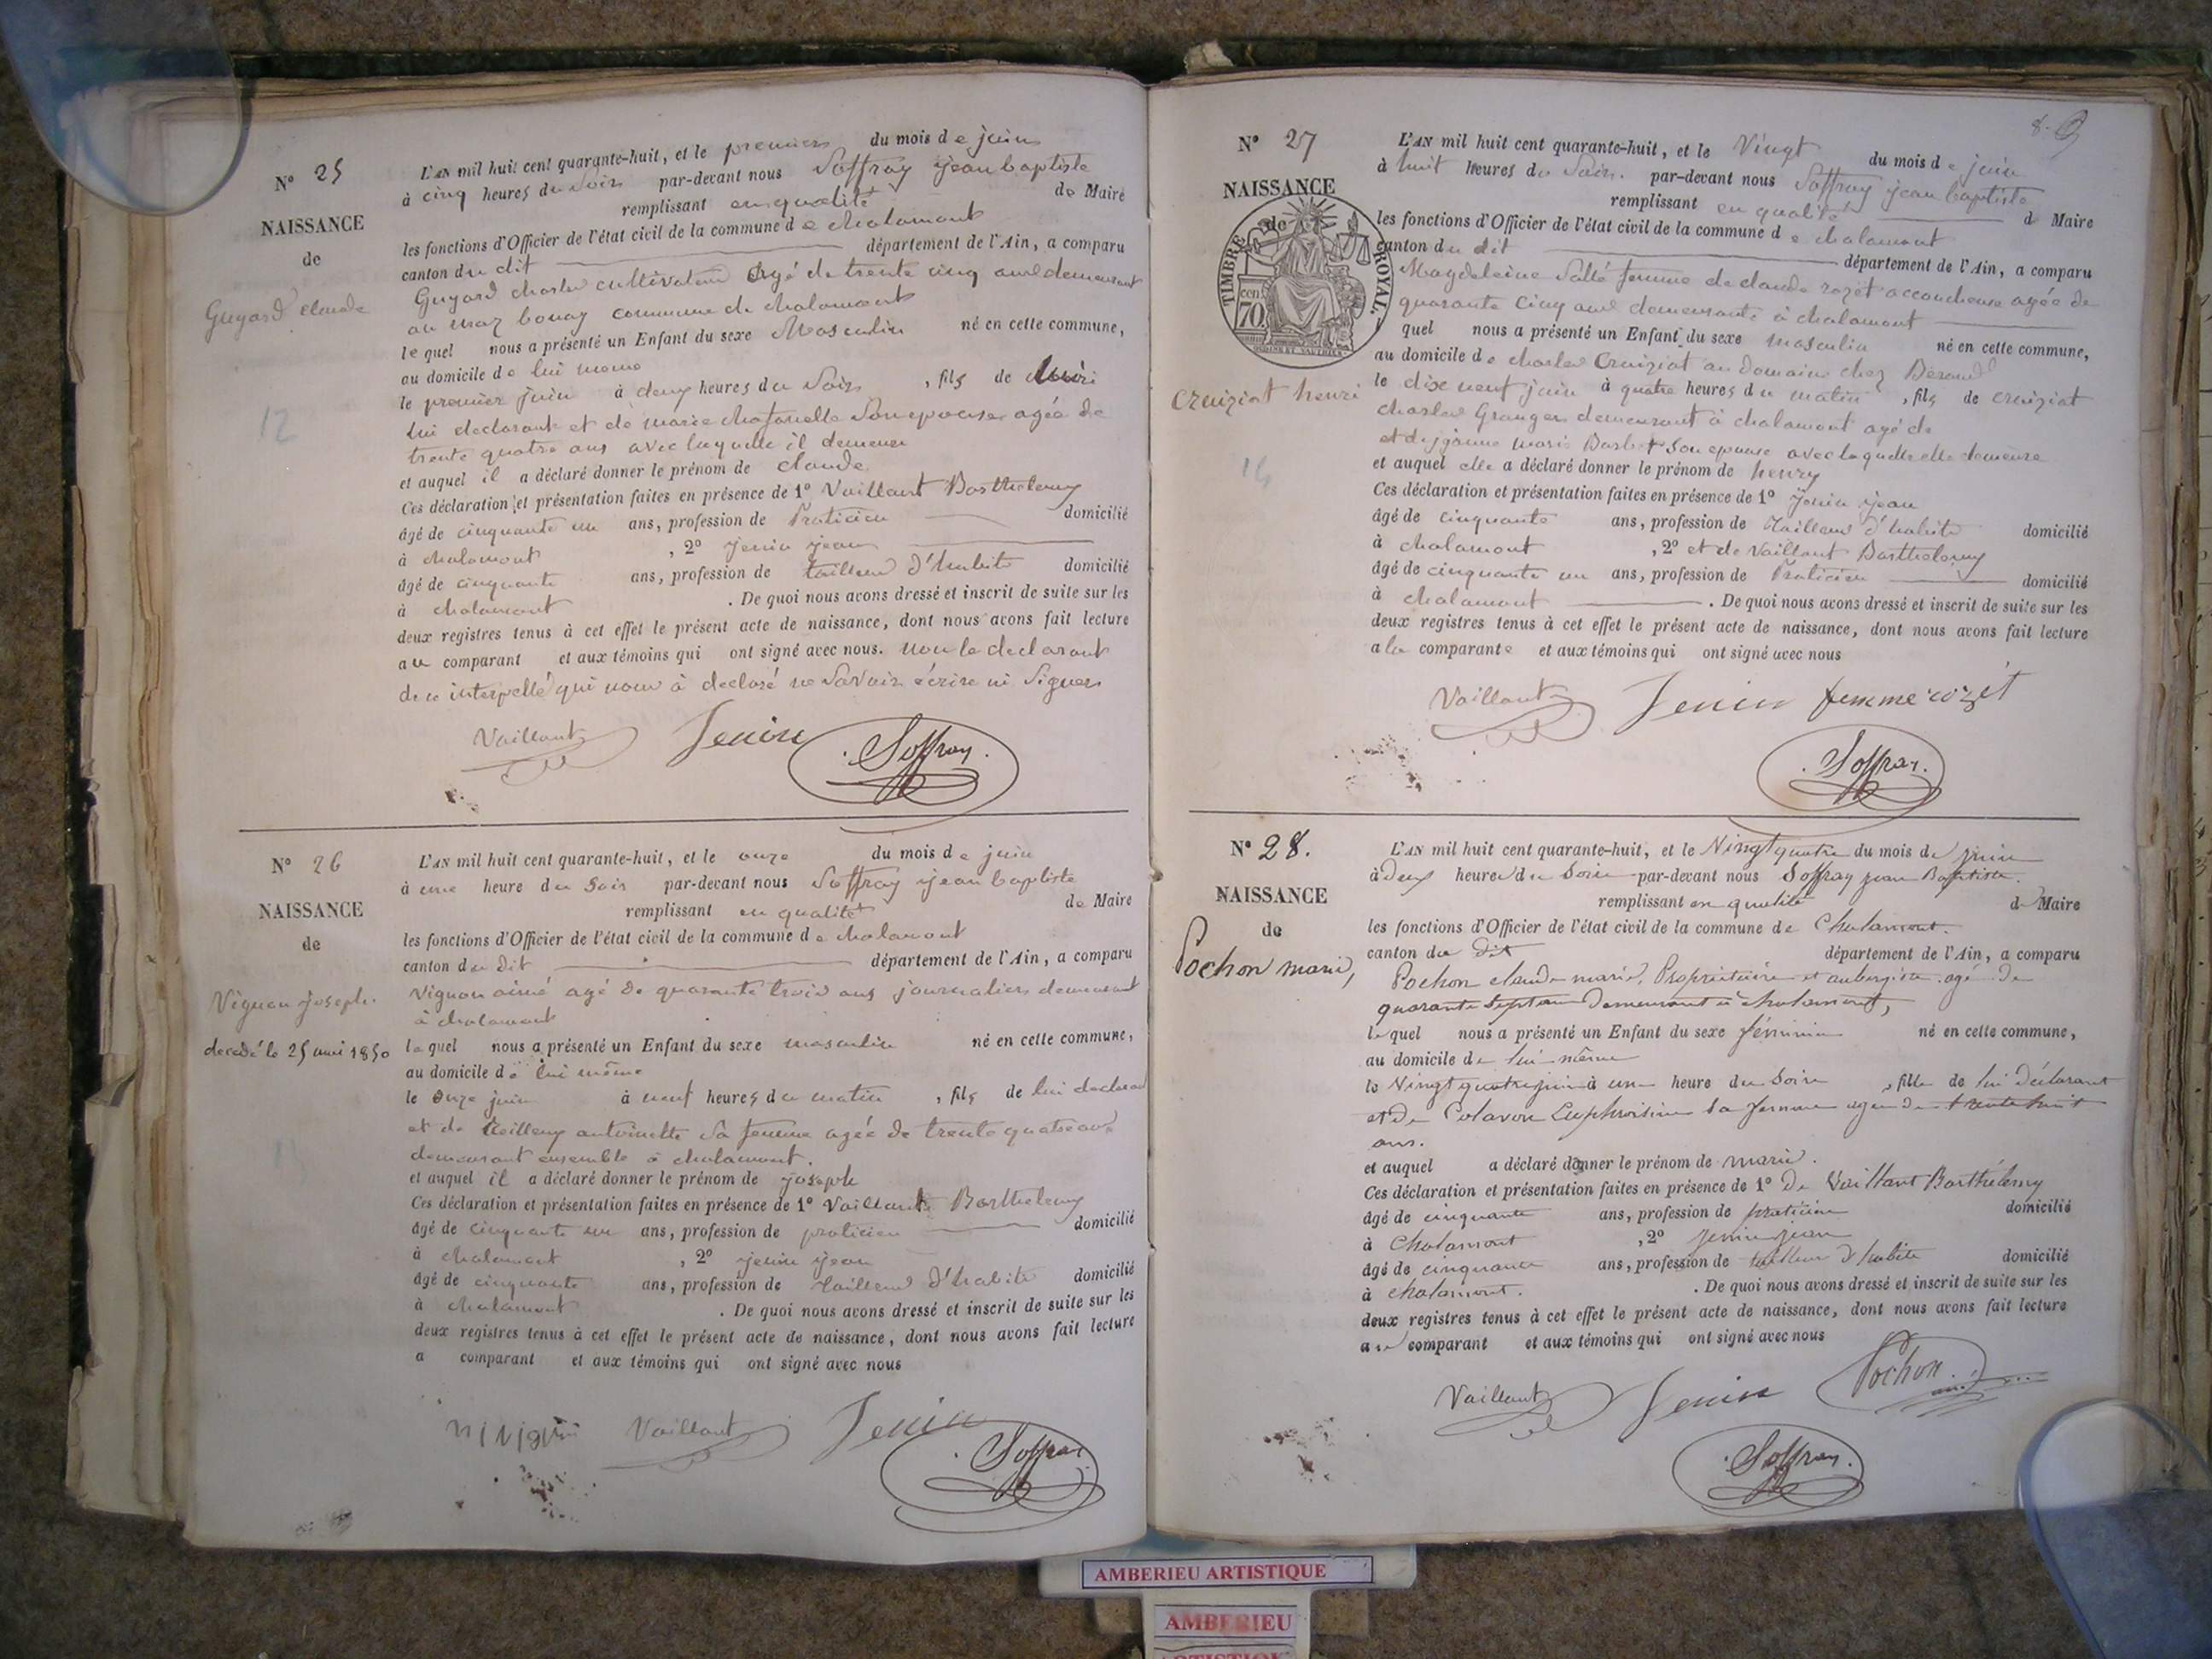 N° 25
NAISSANCE
de
Guyard Claude
12
L'AN mil huit cent quarante-huit, et le premier du mois de juin
à cinq heures du soir par-devant nous Soffray jean baptiste
remplissant en qualité de Maire
les fonctions d'Officier de l'état civil de la commune de chalamont
canton du dit département de l'Ain, a comparu
Guyard charles cultivateur agé de trente cinq ans demeurant
au maz bouay commune de chalamont
le quel nous a présenté un Enfant du sexe Masculin né en cette commune,
au domicile de lui meme
le premier juin à deux heures du soir , fils de
lui declarant et de marie son epouse agée de
trente quatre ans avec laquelle il demeure
et auquel il a déclaré donner le prénom de claude
Ces déclaration et présentation faites en présence de 1° Vaillant Barthelemy
âgé de cinquante un ans, profession de Praticien domicilié
à chalamont , 2° jenin jean
âgé de cinquante ans, profession de tailleur d'habits domicilié
à chalamont . De quoi nous avons dressé et inscrit de suite sur les
deux registres tenus à cet effet le présent acte de naissance, dont nous avons fait lecture
au comparant et aux témoins qui ont signé avec nous. non le declarant
de ce interpellé qui nous à declaré ne savoir écrire ni signer
Vaillant Jenin Soffray
N° 26
NAISSANCE
de
Vignon joseph.
decedé le 25 mai 1850
L'AN mil huit cent quarante-huit, et le onze du mois de juin
à une heure du soir par-devant nous Soffray jean baptiste
remplissant en qualité de Maire
les fonctions d'Officier de l'état civil de la commune de chalamont
canton du dit département de l'Ain, a comparu
Vignon aimé agé de quarante trois ans journalier demeurant
à chalamont
le quel nous a présenté un Enfant du sexe masculin né en cette commune,
au domicile de lui même
le onze juin à neuf heures du matin , fils de lui declarant
et de antoinette sa femme agée de trente quatre ans
demeurant ensemble à chalamont.
et auquel il a déclaré donner le prénom de joseph
Ces déclaration et présentation faites en présence de 1° Vaillant Barthelemy
âgé de cinquante un ans, profession de praticien domicilié
à chalamont , 2° jenin jean
âgé de cinquante ans, profession de tailleur d'habits domicilié
à chalamont . De quoi nous avons dressé et inscrit de suite sur les
deux registres tenus à cet effet le présent acte de naissance, dont nous avons fait lecture
a comparant et aux témoins qui ont signé avec nous
Vaillant Jenin
Soffray
8.
N° 27
NAISSANCE
de
TIMBRE ROYAL.
cen. 70
cruiziat henri
14
L'AN mil huit cent quarante-huit, et le Vingt du mois de juin
à huit heures du soir. par-devant nous Soffray jean baptiste
remplissant en qualité de Maire
les fonctions d'Officier de l'état civil de la commune de chalamont
canton du dit département de l'Ain, a comparu
Magdeleine Sallé femme de claude rozet accoucheuse agée de
quarante cinq ans demeurante à chalamont
quel nous a présenté un Enfant du sexe masculin né en cette commune,
au domicile de charles Cruiziat au domaine chez Beraud
le dix neuf juin à quatre heures du matin , fils de cruiziat
charles Granger demeurant à chalamont agé de
et de jeanne marie Barlet son epouse avec laquelle elle demeure
et auquel elle a déclaré donner le prénom de henry
Ces déclaration et présentation faites en présence de 1° jenin jean
âgé de cinquante ans, profession de Tailleur d'habits domicilié
à chalamont , 2° et de Vaillant Barthelemy
âgé de cinquante un ans, profession de Praticien domicilié
à chalamont . De quoi nous avons dressé et inscrit de suite sur les
deux registres tenus à cet effet le présent acte de naissance, dont nous avons fait lecture
a la comparante et aux témoins qui ont signé avec nous
Vaillant Jenin femme rozet
Soffray
N° 28.
NAISSANCE
de
Pochon marie,
L'AN mil huit cent quarante-huit, et le Vingt quatre du mois de juin
à deux heures du soir par-devant nous Soffray jean Baptiste.
remplissant en qualité de Maire
les fonctions d'Officier de l'état civil de la commune de Chalamont.
canton du dit département de l'Ain, a comparu
Pochon claude marie, Propriétaire et aubergiste agé de
quarante sept ans Demeurant à chalamont,
le quel nous a présenté un Enfant du sexe féminin né en cette commune,
au domicile de lui même
le Vingt quatre juin à une heure du soir , fille de lui déclarant
et de Colavon Euphroisine sa femme agée de trente huit
ans.
et auquel a déclaré donner le prénom de marie.
Ces déclaration et présentation faites en présence de 1° De Vaillant Barthélemy
âgé de cinquante ans, profession de praticien domicilié
à Chalamont , 2° Jenin jean
âgé de cinquante ans, profession de tailleur d'habits domicilié
à chalamont. . De quoi nous avons dressé et inscrit de suite sur les
deux registres tenus à cet effet le présent acte de naissance, dont nous avons fait lecture
au comparant et aux témoins qui ont signé avec nous
Vaillant Jenin Pochon.
Soffray.
AMBERIEU ARTISTIQUE
AMBERIEU
ARTISTIQUE